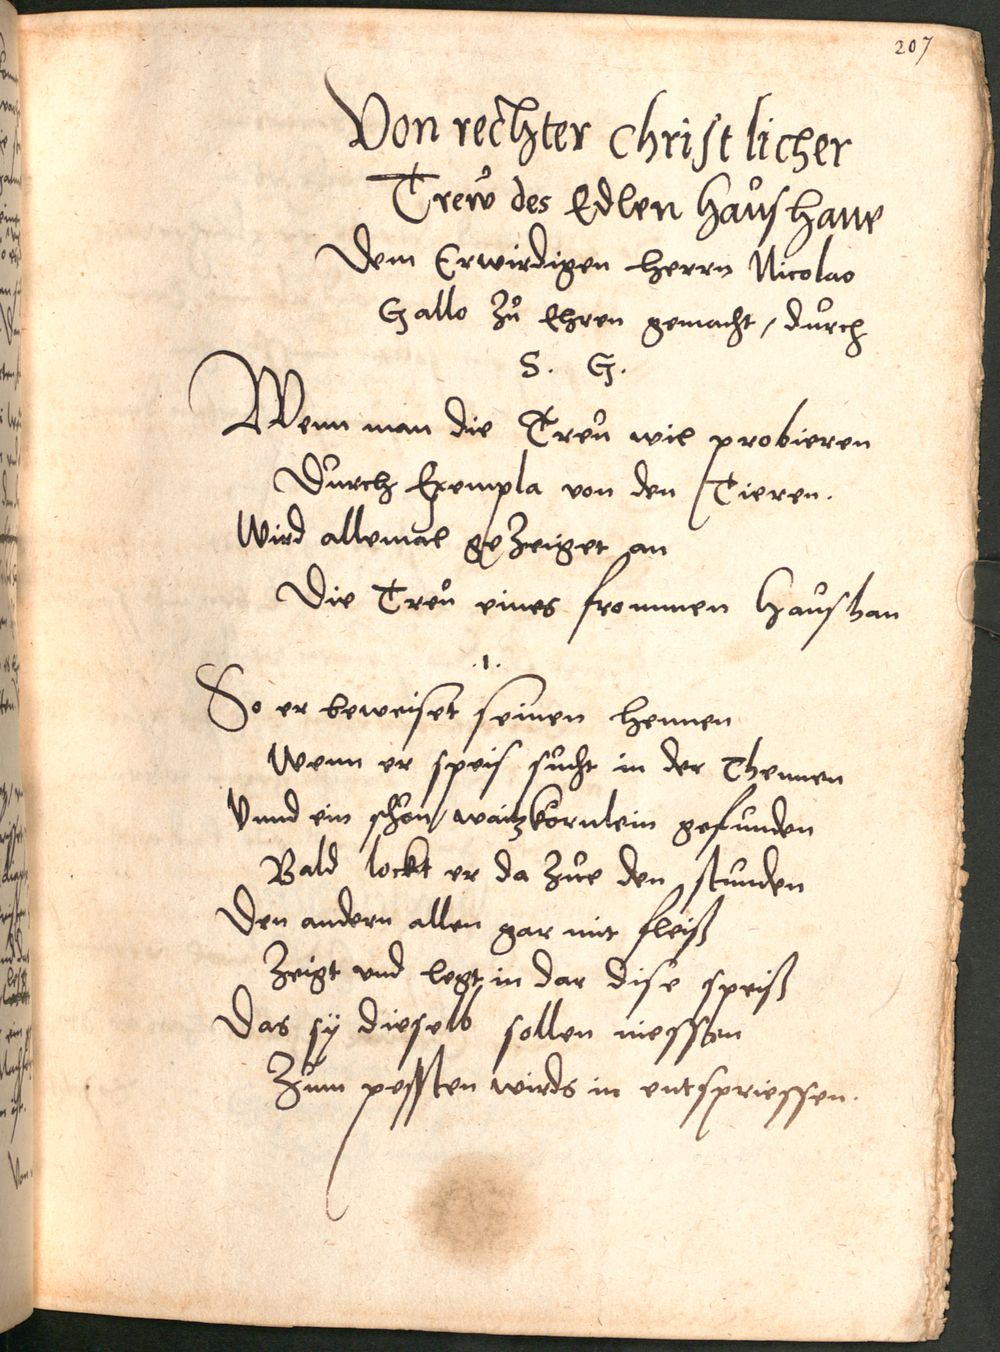 207
Von rechter christlicher
Trew des Edlen Haushane
Dem Erwirdigen herrn Nicolao
Gallo zu Ehren gemacht / durch
S. G.
Wenn man die Treu wil probieren
Durch Exempla von den Tieren.
Wird allemal gezeiget an
Die Treu eines frommen Haushan
.1.
So er beweiset seinen hennen
Wenn er speis sucht in der Thennen
Vnnd ein schön waitzkörnlein gefunden
Bald lockt er da zue den stunden
Den andern allen gar mit fleiß
Zeigt vnd legt in dar dise speiß
Das sÿ dieselb sollen niessen
Zum pessten wirds in entspriessen.